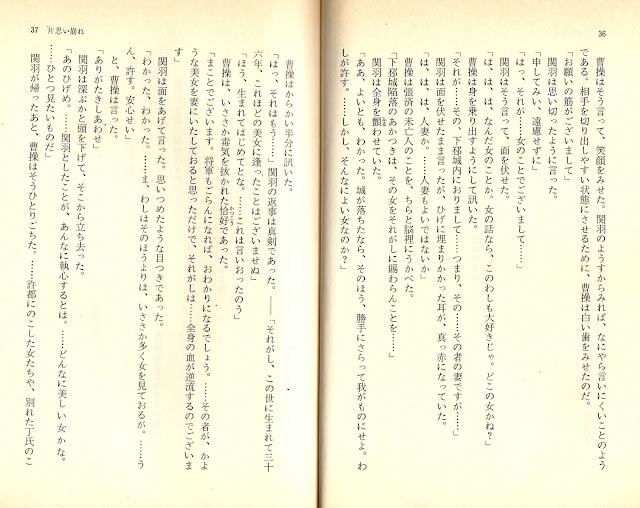 36
曹操はそう言って、笑顔をみせた。関羽のようすからみれば、なにやら言いにくいことのよう
である。相手を切り出しやすい状態にさせるために、曹操は白い歯をみせたのだ。
「お願いの筋がございまして」
関羽は思い切ったように言った。
「申してみい、遠慮せずに」
「はっ、それが……女のことでございまして……」
関羽はそう言って、面を伏せた。
「は、は、は、なんだ女のことか。女の話なら、このわしも大好きじゃ。どこの女かね?」
曹操は身を乗り出すようにして訊いた。
「それが……その、下邳城内におりまして……つまり、その……その者の妻ですが……」
関羽は面を伏せたまま言ったが、ひげに埋まりかかった耳が、真っ赤になっていた。
「は、は、は、人妻か。……人妻もよいではないか」
曹操は張済の未亡人のことを、ちらと脳裡にうかべた。
「下邳城陥落のあかつきは、その女をそれがしに賜わらんことを……」
関羽は全身を顫わせていた。
「ああ、よいとも、わかった。城が落ちたなら、そのほう、勝手にさらって我がものにせよ。わ
しが許す。……しかし、そんなによい女なのか?」
37 片思い崩れ
曹操はからかい半分に訊いた。
「はっ、それはもう……」関羽の返事は真剣であった。――「それがし、この世に生まれて三十
六年、これほどの美女に逢ったことはございませぬ」
「ほう、生まれてはじめてとな。……これは言いおったのう」
曹操は、いささか毒気を抜かれた恰好であった。
かっこう
「まことでございます。将軍もごらんになれば、おわかりになるでしょう。……その者が、かよ
うな美女を妻にいたしておると思っただけで、それがしは……全身の血が逆流するのでございま
す」
関羽は面をあげて言った。思いつめたような目つきであった。
「わかった、わかった。……ま、わしはそのほうよりは、いささか多く女を見ておるが。……う
ん、許す。安心せい」
と、曹操は言った。
「ありがたきしあわせ」
関羽は深ぶかと頭を下げて、そこから立ち去った。
「あのひげめ。……関羽としたことが、あんなに執心するとは。……どんなに美しい女かな。
……ひとつ見たいものだ」
関羽が帰ったあと、曹操はそうひとりごちた。……許都にのこした女たちや、別れた丁氏のこ